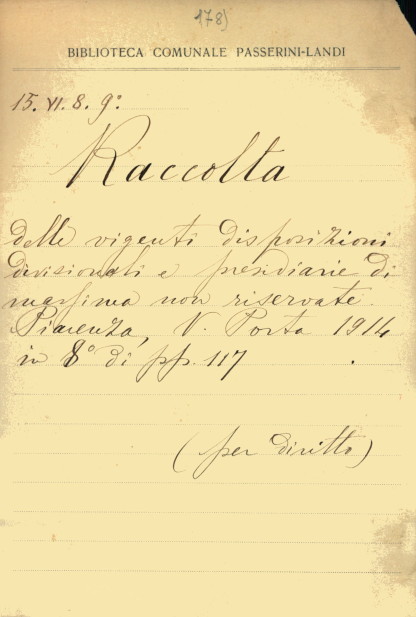 178)
BIBLIOTECA COMUNALE PASSERINI-LANDI
15. VI. 8. 9°.
Raccolta
delle vigenti disposizioni
divisionali e presidiarie di
massima non riservate.
Piacenza, V. Porta 1914
in 8° di pp. 117
(per diritto)